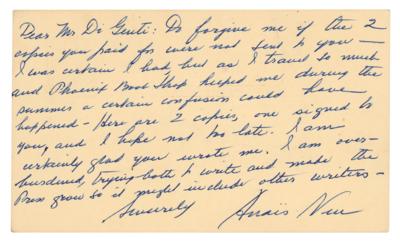 Dear Mr Di Genti: Do forgive me if the 2
copies you paid for were not sent to you —
I was certain I had but as I travel so much
and Phoenix Book Shop helped me during the
summer a certain confusion could have
happened – Here are 2 copies, one signed to
you, and I hope not too late. I am
certainly glad you wrote me. I am over-
burdened, trying both to write and made the
Press grow so it might include other writers –
Sincerely Anaïs Nin